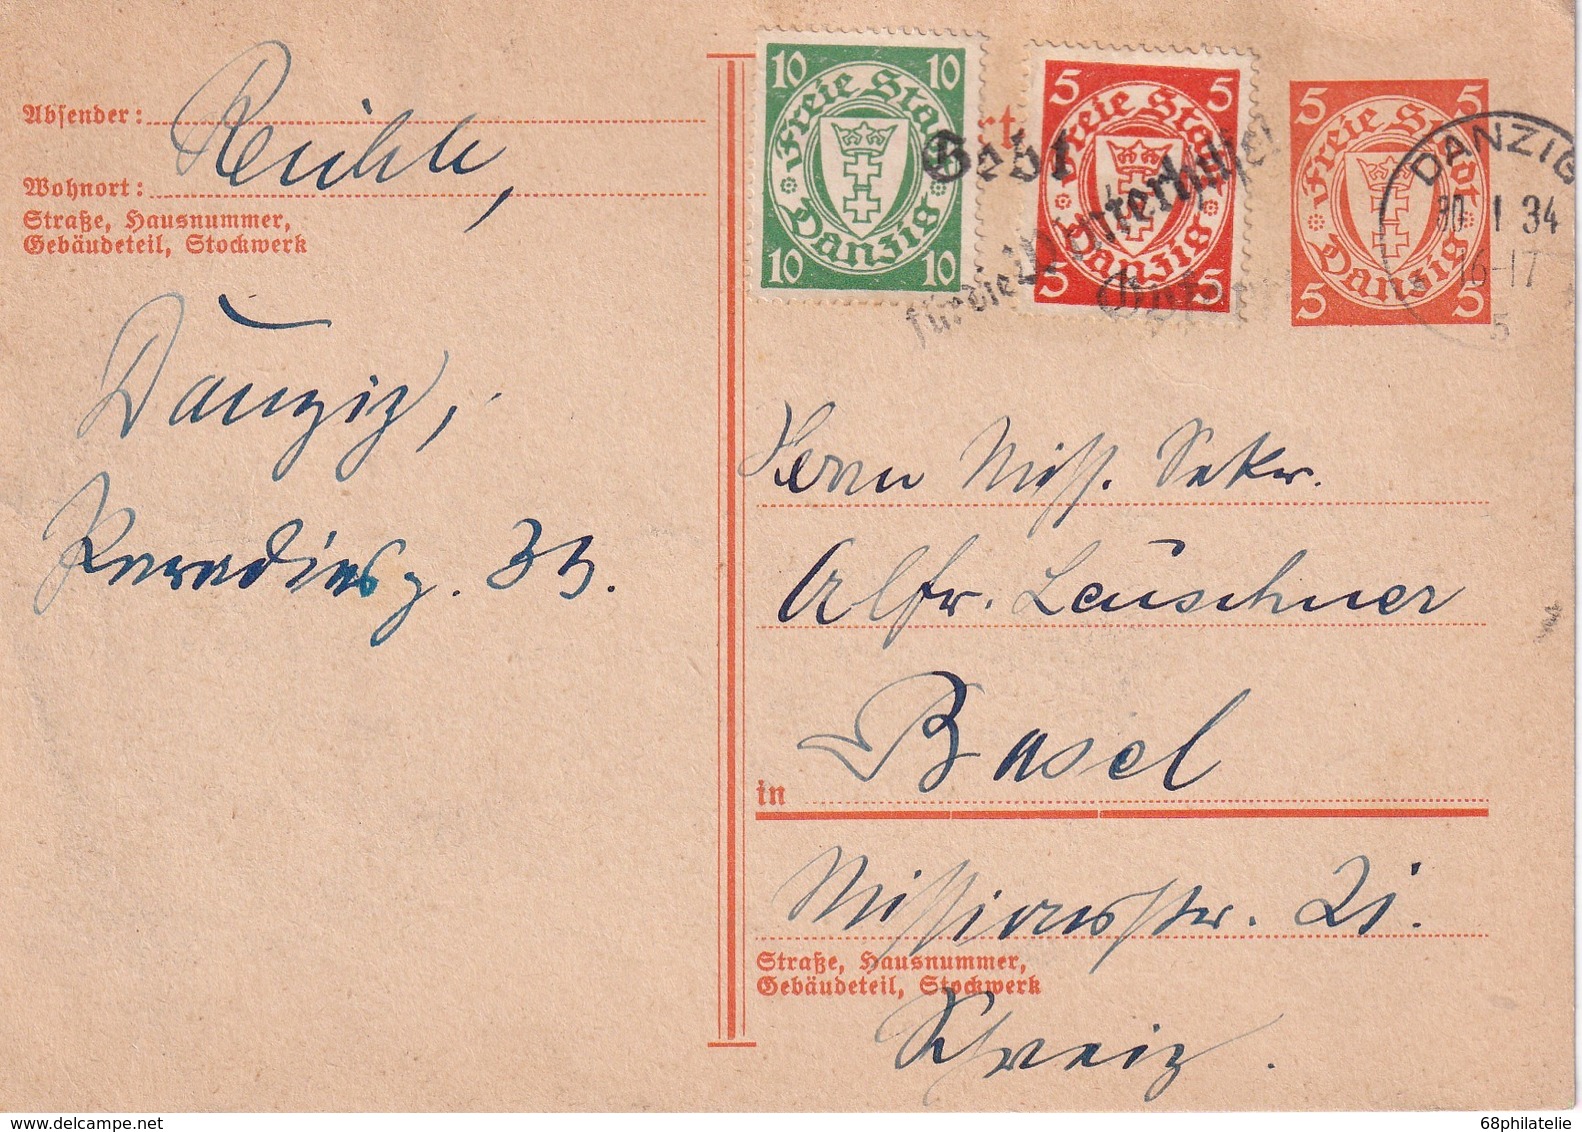 Absender: Reihle,
Wohnort:
Straße, Hausnummer,
Gebäudeteil, Stockwerk
Danzig,
Paradiesg. 33.
10 10
Freie Stadt
Danzig
10 10
5 5
Freie Stadt
Danzig
5 5
5 5
Freie Stadt
Danzig
5 5
Gebt
für die Winterhilfe
DANZIG
30 1 34
16-17
5
Herrn Miss. Sekr.
Alfr. Leuschner
in Basel
Missionsstr. 21.
Straße, Hausnummer,
Gebäudeteil, Stockwerk
Schweiz.
68philatelie